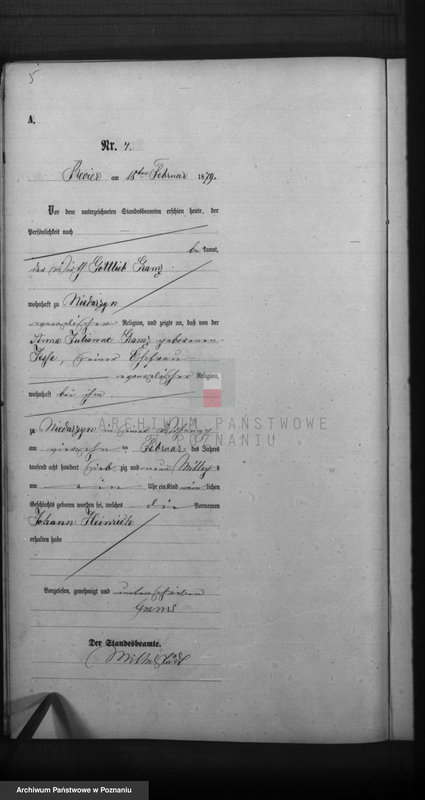 5
A.
Nr. 7.
Revier am 15ten Februar 1879.
Vor dem unterzeichneten Standesbeamten erschien heute, der
Persönlichkeit nach
be kannt,
der Gottlieb
wohnhaft zu Niedarzyn
evangelischer Religion, und zeigte an, daß von der
Anna Julianne geborenen
seiner Ehefrau
evangelischer Religion,
wohnhaft bei ihm
ARCHIWUM PAŃSTWOWE
W POZNANIU
zu Niedarzyn in seiner Wohnung
am vierzehn ten Februar des Jahres
tausend acht hundert sieb zig und neun Mittags
um ein Uhr ein Kind männ lichen
Geschlechts geboren worden sei, welches die Vornamen
Johann Heinrich
erhalten habe
Vorgelesen, genehmigt und unterschrieben
Der Standesbeamte.
Archiwum Państwowe w Poznaniu